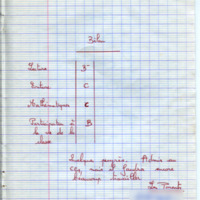 Bilan
Lecture B
Ecriture C
Mathématiques C
Participation à B
la vie de la
classe
Quelque progrès. Admis au
CE2, mais il faudra encore
beaucoup travailler.
Les Parents